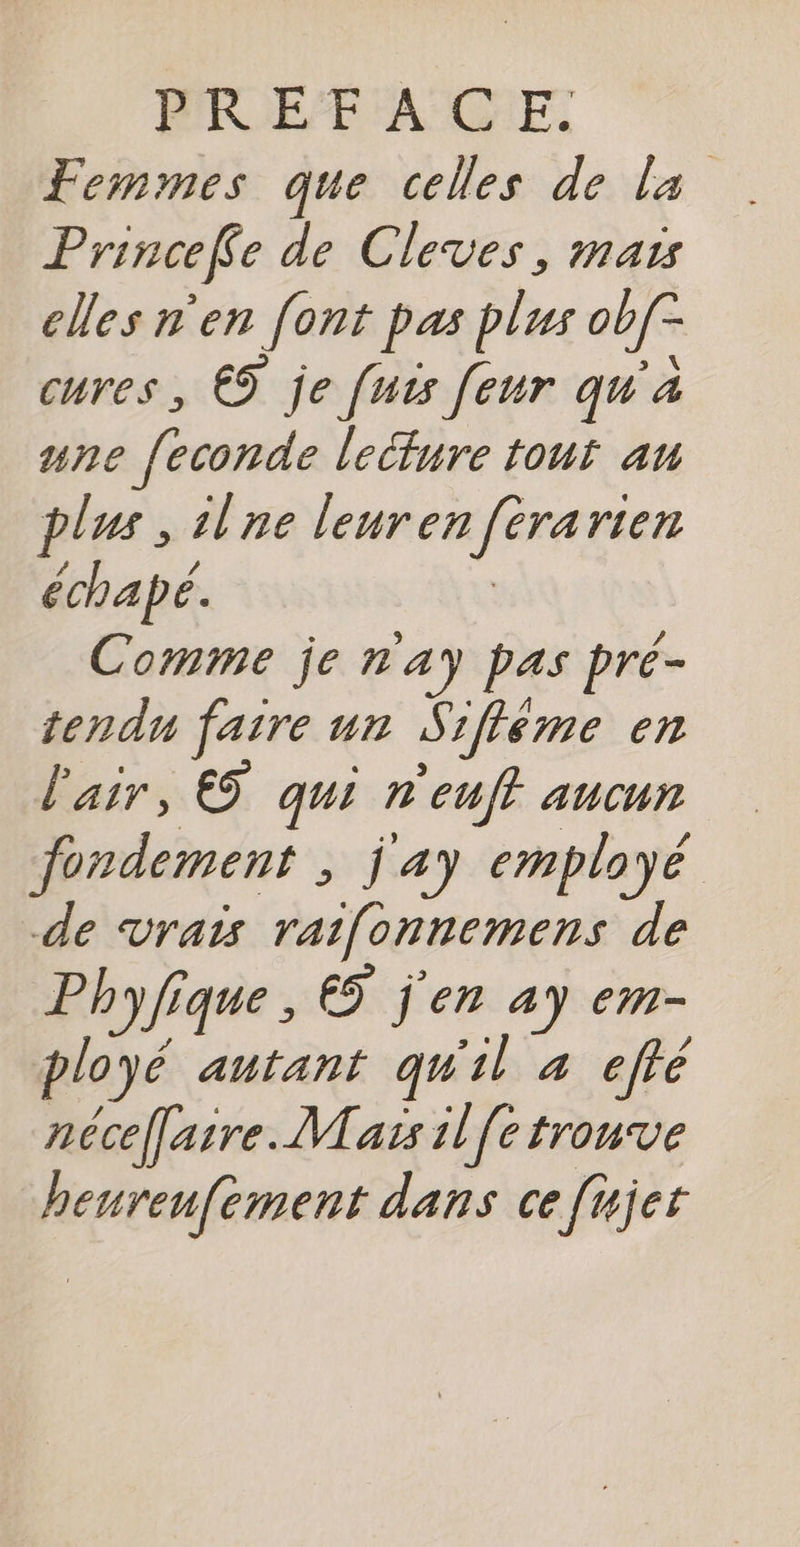 PREFACE.
Femmes que celles de la
Princeſſe de Cleves, mais
elles n'en ſont pas plus obſ-
cures, & je ſuis ſeur qu'à
une ſeconde lecture tout au
plus, il ne leur en ſera rien
échapé.
Comme je n'ay pas pré-
tendu faire un Siſtéme en
l'air, & qui n'euſt aucun
fondement, j'ay employé
de vrais raiſonnemens de
Phyſique, & j'en ay em-
ployé autant qu'il a eſté
néceſſaire. Mais il ſe trouve
heureuſement dans ce ſujet